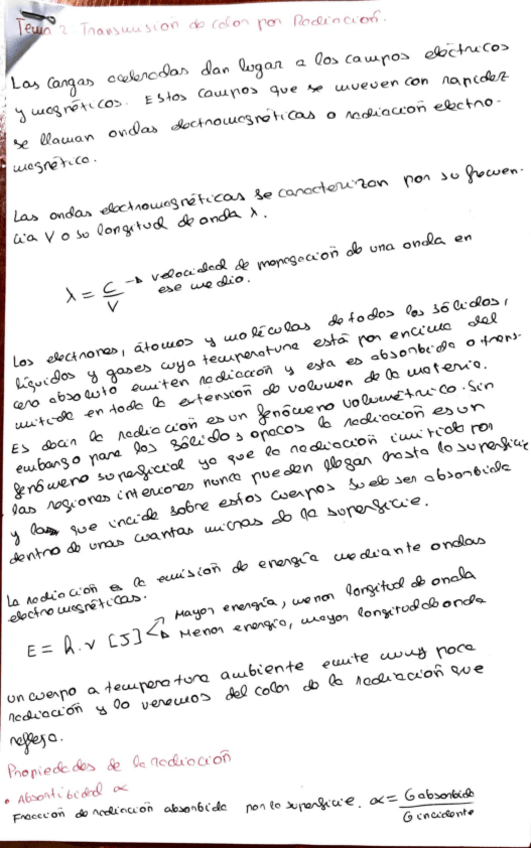 Tema 2: Transmision de calor por Radiacion.
Las cargas aceleradas dan lugar a los campos eléctricos
y magnéticos. Estos campos que se mueven con rapidez
se llaman ondas electromagnéticas o radiación electro-
magnético.
Las ondas electromagnéticas se caracterizan por su frecuen-
cia V o su longitud de onda λ.
λ = C/V → velocidad de propagación de una onda en
ese medio.
Los electrones, átomos y moléculas de todos los sólidos,
líquidos y gases cuya temperatura está por encima del
cero absoluto emiten radiación y esta es absorbida o trans-
mitida en toda la extensión de volumen de la materia.
Es decir la radiación es un fenómeno volumétrico. Sin
embargo para los sólidos opacos la radiación es un
fenómeno superficial ya que la radiación emitida por
las regiones interiores nunca pueden llegar hasta la superficie
y la que incide sobre estos cuerpos suele ser absorbida
dentro de unas cuantas micras de la superficie.
La radiación es la emisión de energía mediante ondas
electromagnéticas.
E = h.v [J] → Mayor energía, menor longitud de onda
→ Menor energía, mayor longitud de onda
un cuerpo a temperatura ambiente emite muy poca
radiación y lo veremos del color de la radiación que
refleja.
Propiedades de la radiación
• Absortibidad α
Fracción de radiación absorbida por la superficie. α = G absorbida / G incidente